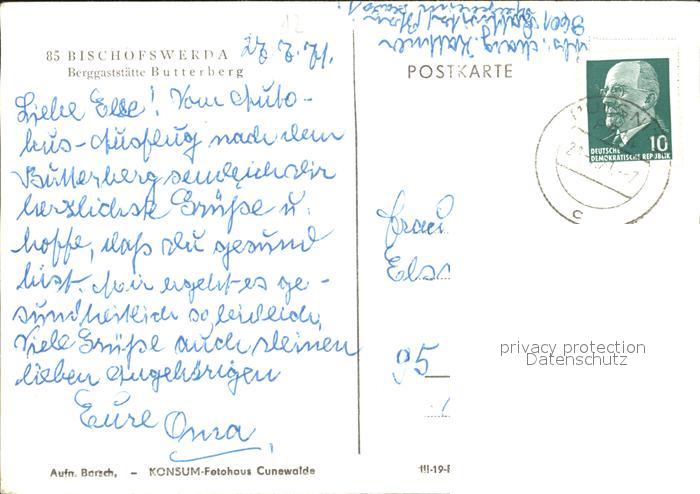 85 BISCHOFSWERDA
Berggaststätte Butterberg
27.7.71.
Liebe Else! Vom Auto-
bus-Ausflug nach dem
Butterberg sende ich dir
herzlichste Grüße u.
hoffe, daß du gesund
bist. Mir ergeht es ge-
sundheitlich so leidlich.
Viele Grüße auch deinen
lieben Angehörigen
Eure Oma
Aufn. Barsch, - KONSUM-Fotohaus Cunewalde
12
POSTKARTE
DEUTSCHE
DEMOKRATISCHE REPUBLIK
10
Frau
Els
95
III-19-
privacy protection
Datenschutz